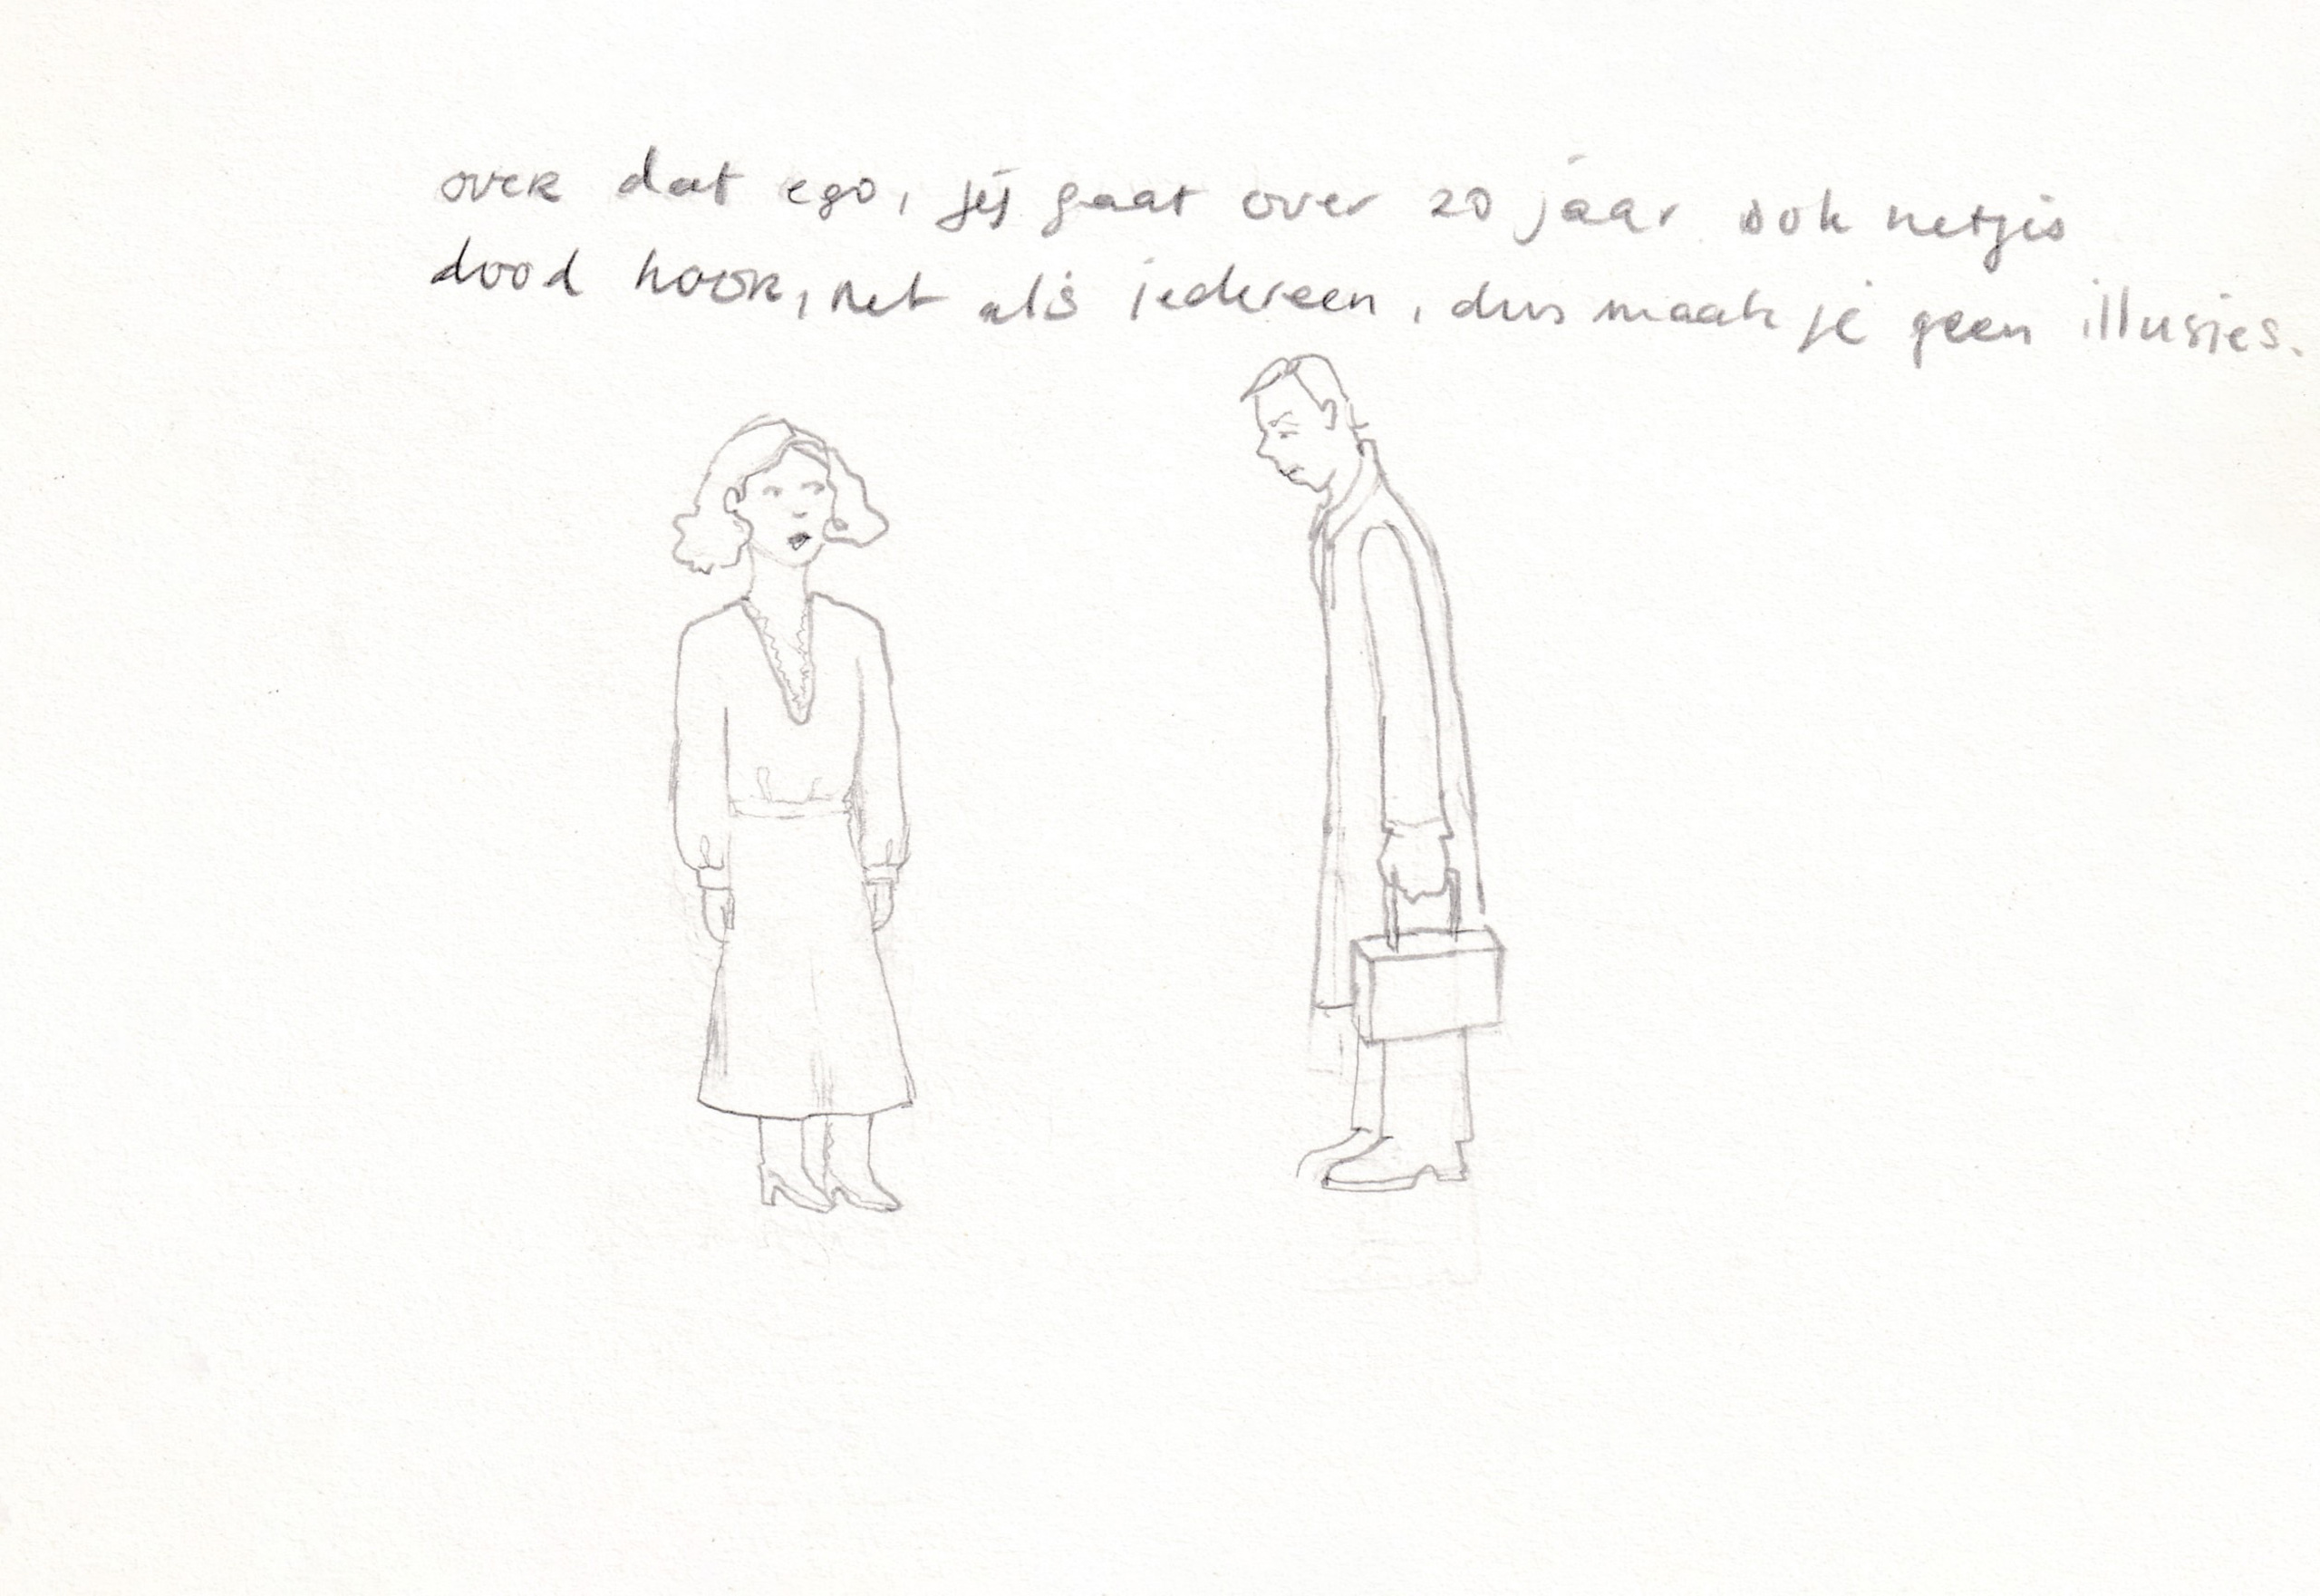 over dat ego, jij gaat over 20 jaar ook netjes
dood hoor, net als iedereen, dus maak je geen illusies.